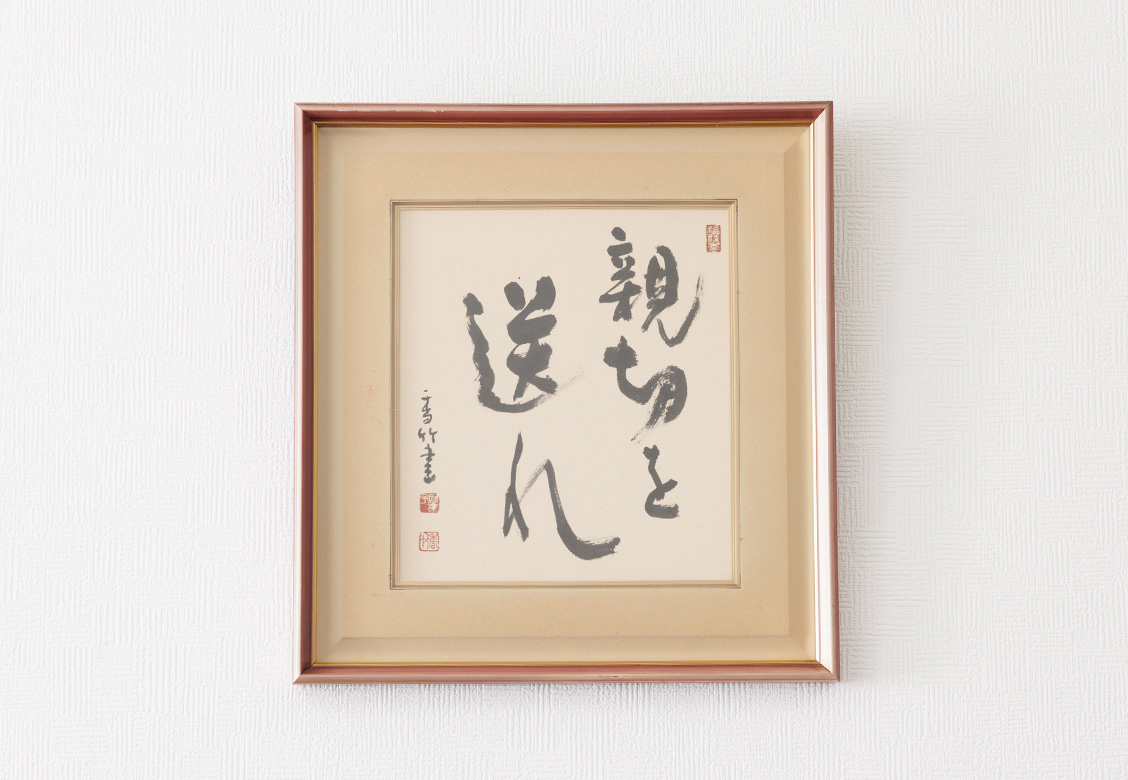 親切を
送れ
香竹書